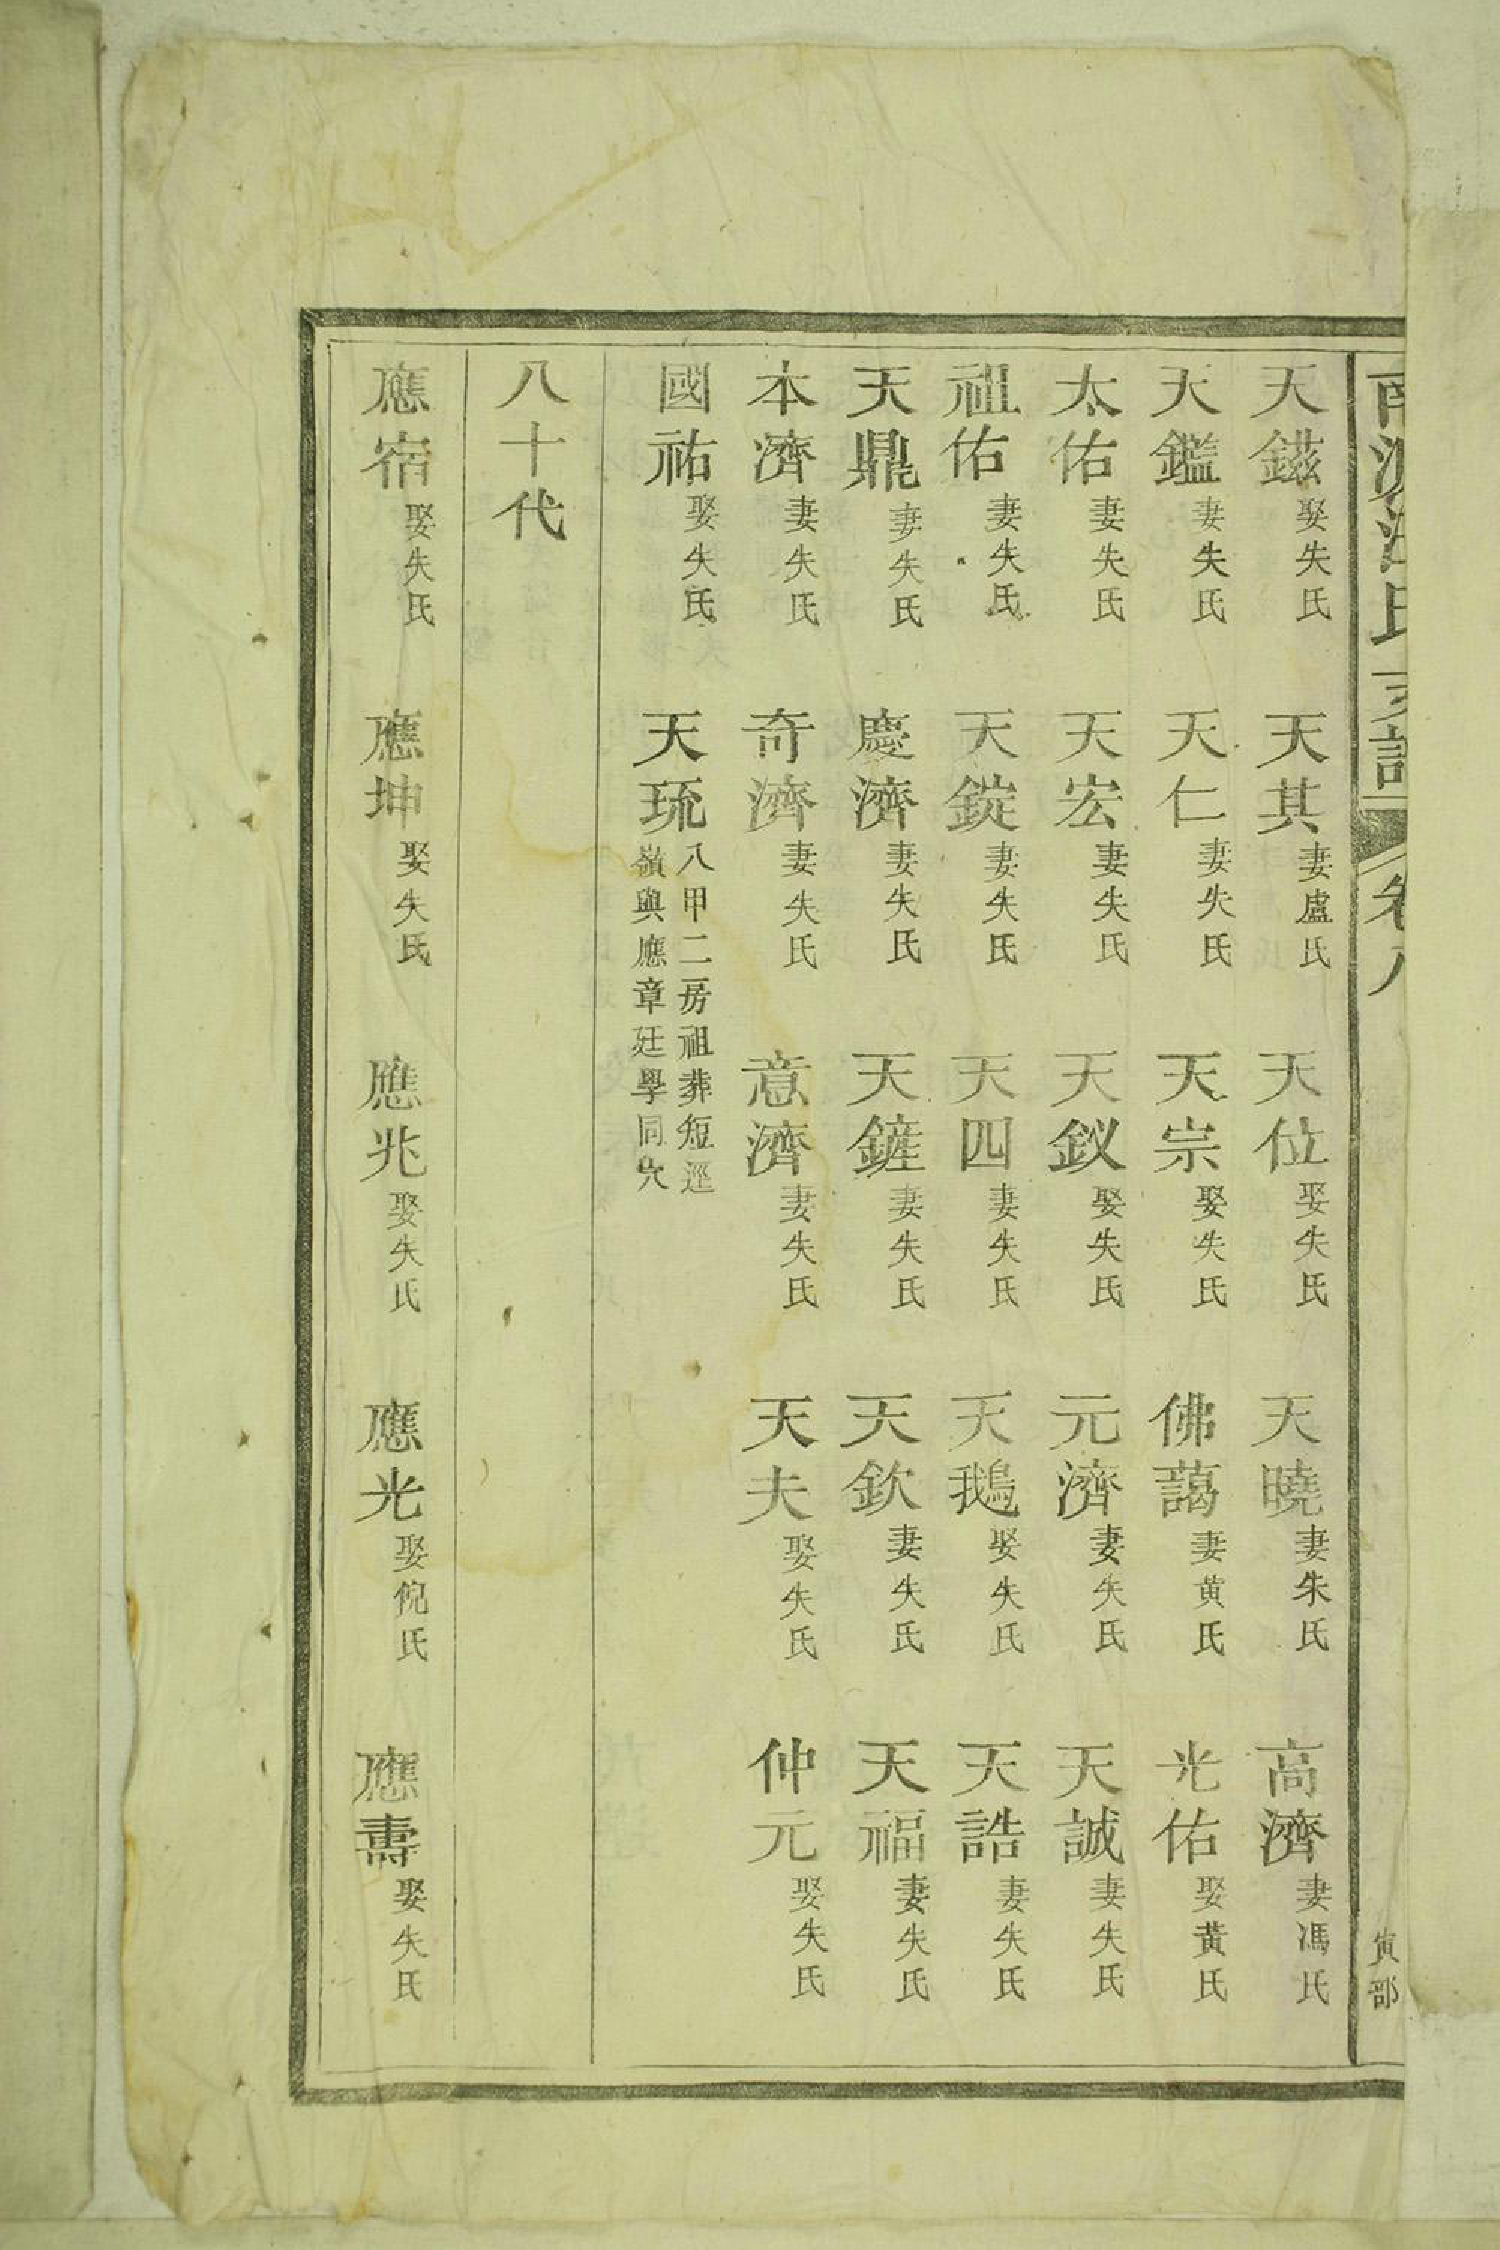 氏支譜 卷八 寅部
天鎡娶失氏 天其妻盧氏 天位娶失氏 天曉妻朱氏 高濟妻馮氏
天鑑妻失氏 天仁妻失氏 天宗娶失氏 佛藹妻黄氏 光佑娶黃氏
太佑妻失氏 天宏妻失氏 天釵娶失氏 元濟妻失氏 天誠妻失氏
祖佑妻失氏 天錠妻失氏 天四妻失氏 天鵝娶失氏 天誥妻失氏
天鼎妻失氏 慶濟妻失氏 天鏟妻失氏 天欽妻失氏 天福妻失氏
本濟妻失氏 奇濟妻失氏 意濟妻失氏 天夫娶失氏 仲元娶失氏
國祐娶失氏 天琉八甲二房祖葬短逕
嶺與應章廷學同穴
八十代
應宿娶失氏 應坤娶失氏 應兆娶失氏 應光娶倪氏 應壽娶失氏